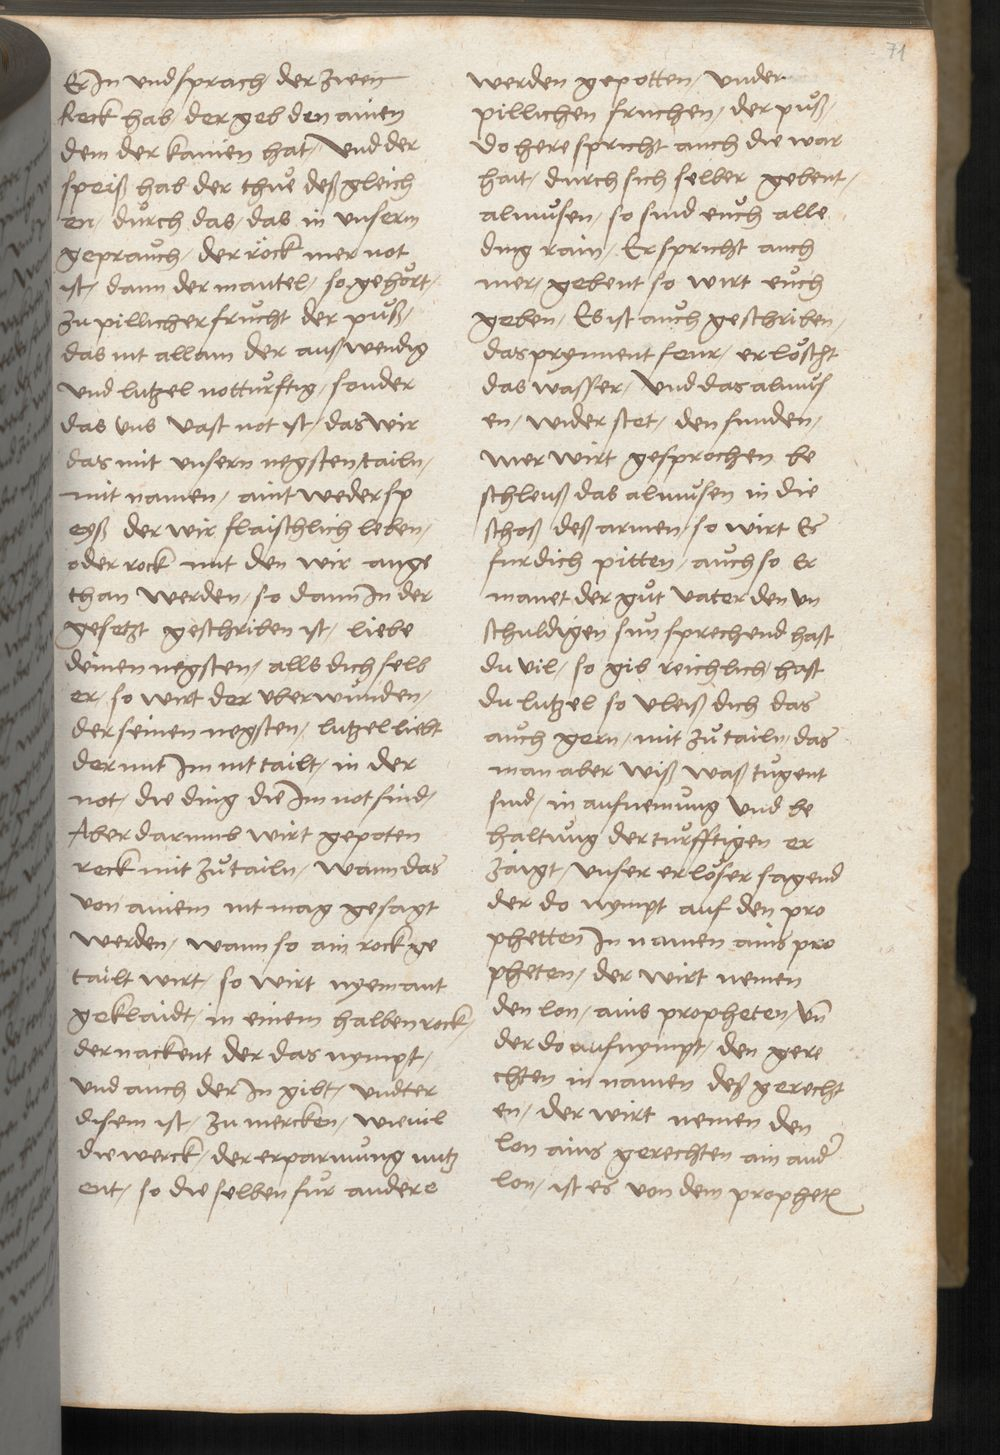 71
Er In vnd sprach der zwen
Reck hab / der geb den ainen
dem der kainen hat / Vnd der
speiß hab der thue deßgleich
en / durch das / das in vnserm
geprauch / der röck mer not
ist / dann der mantel / so gehört /
zu pillicher frucht der puß /
das nit allain der auswendig
vnd lutzel notturftig / sonder
das vns vast not ist / das wir
das mit vnsern negsten tailn /
mit namen / aintweder sp
eyß der wir flaischlich leben /
oder rock mit den wir ange
than werden / so dann In der
gesetzt geschriben ist / liebe
deinen negsten / alls dich selb
er / so wirt der vberwunden /
der seinen negsten / lutzel liebt
der mit Im nit tailt / in der
not / die ding die Im not sind /
Aber darumb wirt gepoten
reck mit zu tailn / wann das
von ainem nit mag gesagt
werden / wann so ain rock ge
tailt wirt / so wirt nyemant
geklaidt / in einem halben rock /
der nackent der das nympt /
vnd auch der In gibt / vndter
disem ist / zu mercken / wieuil
die werck / der erparmung nutz
ent / so die selben fur andere
werden gepotten / vnder
pillichen fruchen / der puß /
do here spricht auch die war
hait / durch sich selber gebent /
almusen / so sind euch alle
ding rain / Er spricht auch
mer / gebent so wirt euch
geben / Es ist auch geschriben /
das prynnent feur / erlöscht
das wasser / Vnd das almus
en / widerstet / den sunden /
mer wirt gesprochen be
schleuß das almusen in die
schoß deß armen / so wirt Es
fur dich pitten / auch so Er
manet der gut vater den vn
schuldigen sun sprechend hast
du vil / so gib reichlich / hast
du lutzel so vleiß dich das
auch gern / mit zu tailn / das
man aber wiß waß tugent
sind / in aufnemung vnd be
haltung der turfftigen er
zaigt / vnser erlöser sagend
der do nympt auf den pro
phetten In namen ains pro
pheten / der wirt nemen
den lon / ains propheten / vn̄
der do aufnympt / den gere
chten in namen deß gerecht
en / der wirt nemen den
lon ains gerechten ain and̄
lon / ist es von dem prophetē